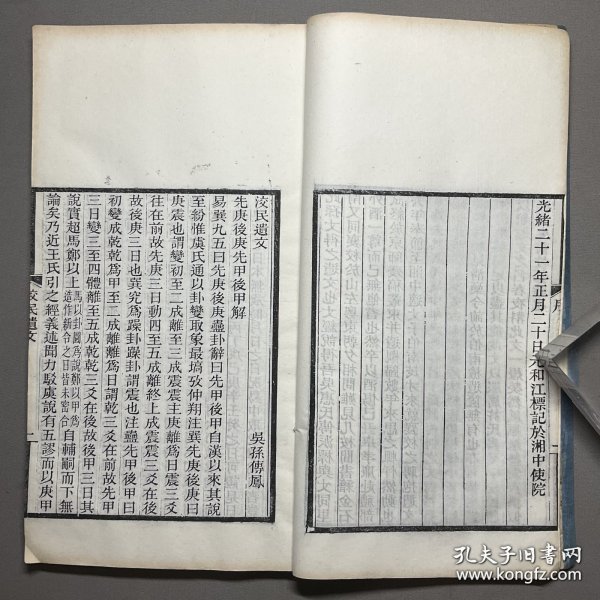 光緒二十一年正月二十日元和江標記於湘中使院
序
洨民遺文
吳孫傳鳳
先庚後庚先甲後甲解
易巽九五曰先庚後庚蠱卦辭曰先甲後甲自漢以來其說
至紛惟虞氏通以卦變取象最塙攷仲翔注巽先庚後庚曰
庚震也謂變初至二成離至三成震震主庚離為日震三爻在
往在前故先庚三日動四至五成離終上成震震三爻在後
故後庚三日也巽究為躁卦躁卦謂震也注蠱先甲後甲曰
初變成乾乾為甲至二成離離為日謂乾三爻在前故先甲
三日變三至四體離至五成乾乾三爻在後故後甲三日其
說實超馬鄭以上馬以卦圖為說鄭以甲為造作新令之日皆未密合自輔嗣而下無
論矣乃近王氏引之經義述聞力駁虞說有五謬而以庚甲
洨民遺文
孔夫子旧书网
www.kongfz.com